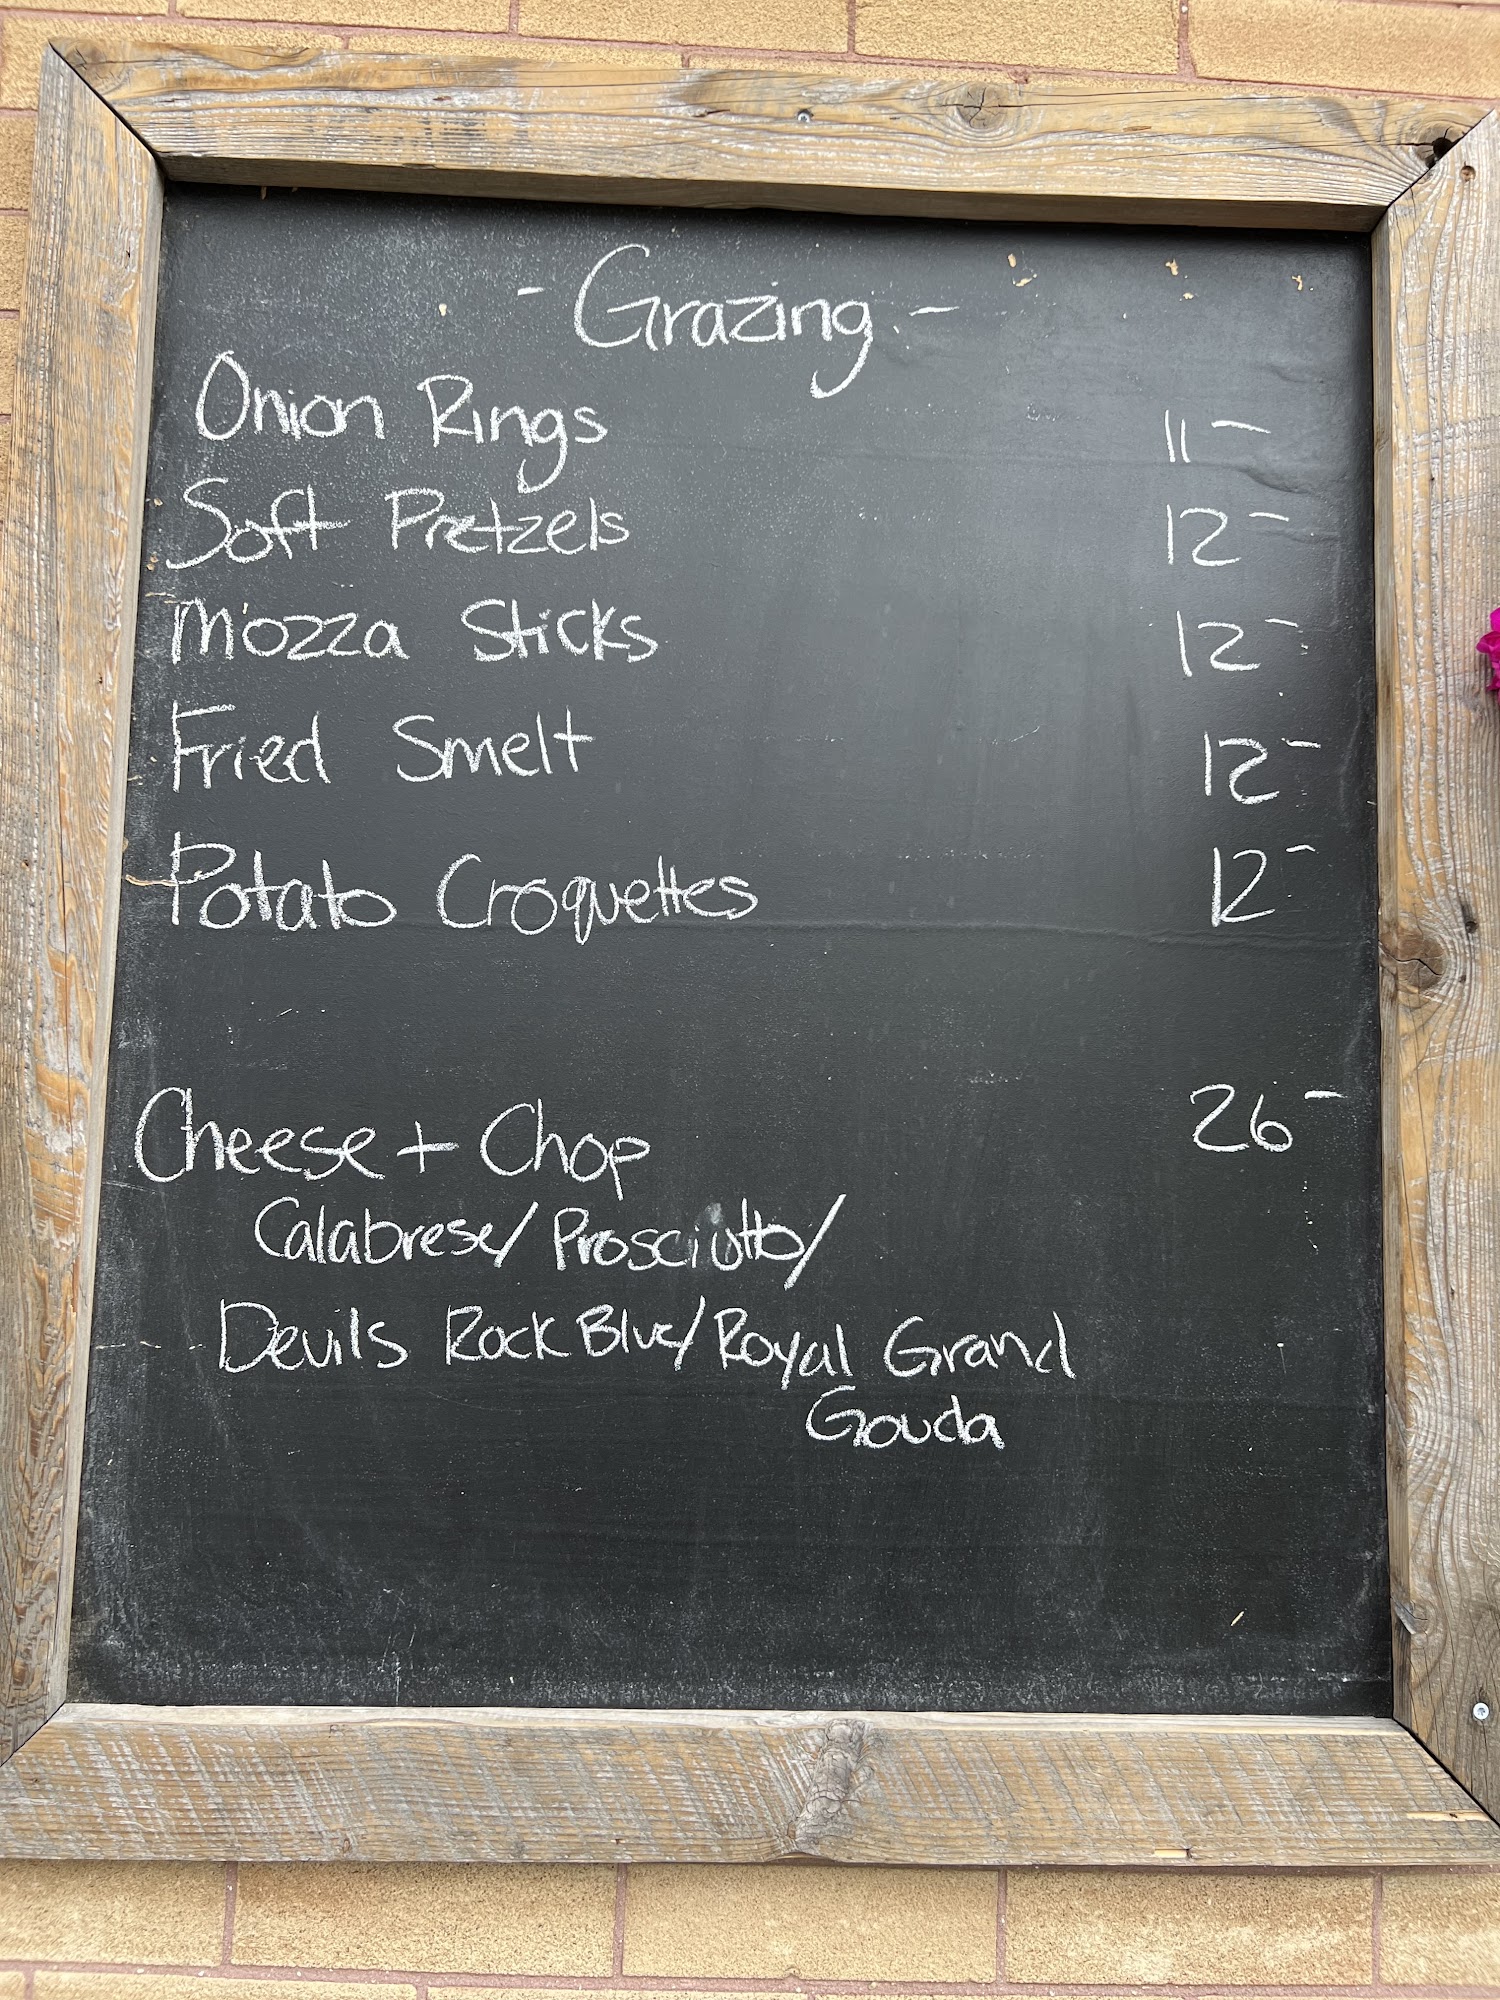 - Grazing -
Onion Rings 11-
Soft Pretzels 12-
Mozza Sticks 12-
Fried Smelt 12-
Potato Croquettes 12-
Cheese + Chop 26-
Calabrese/Prosciutto/
Devils Rock Blue/Royal Grand
Gouda